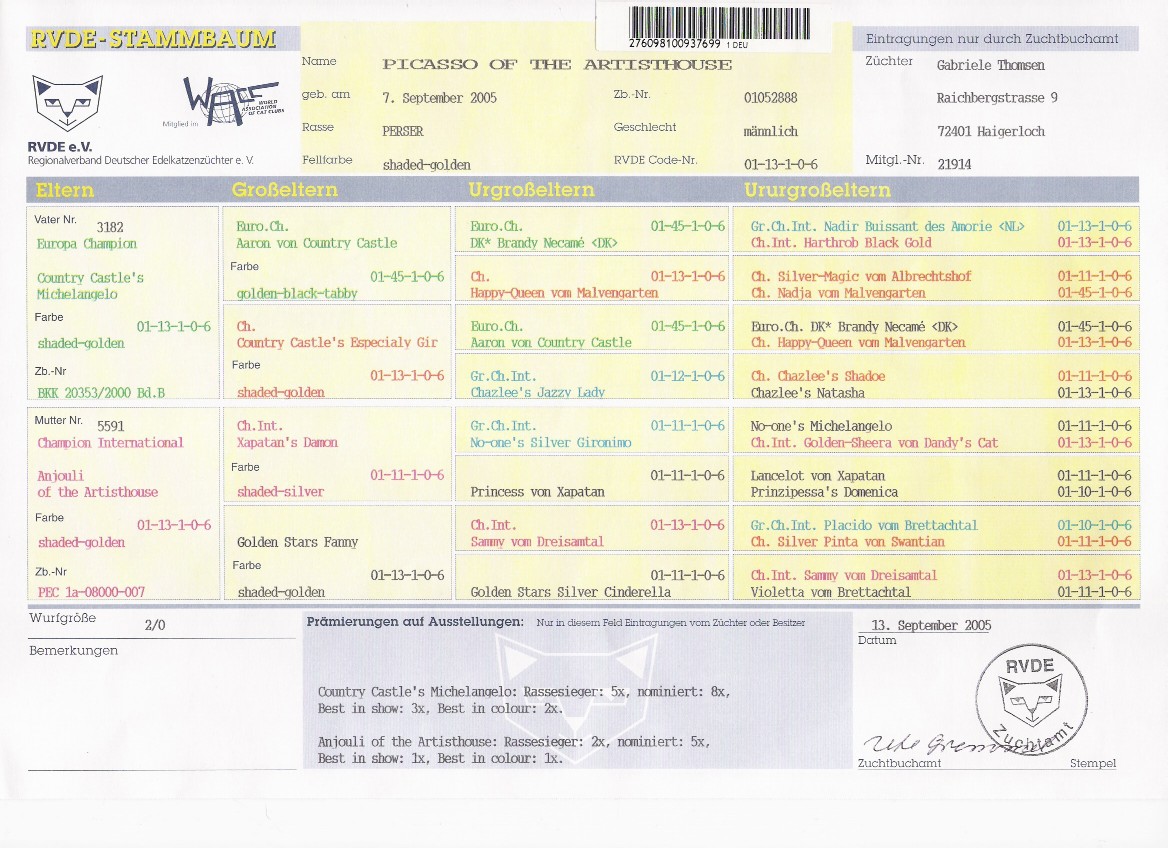 276098100937699 1 DEU
RVDE-STAMMBAUM
Eintragungen nur durch Zuchtbuchamt
Name PICASSO OF THE ARTISTHOUSE
Züchter Gabriele Thomsen
geb. am 7. September 2005 Zb.-Nr. 01052888
Raichbergstrasse 9
WACC WORLD ASSOCIATION OF CAT CLUBS
Mitglied im
Rasse PERSER Geschlecht männlich
72401 Haigerloch
RVDE e.V.
Regionalverband Deutscher Edelkatzenzüchter e. V.
Fellfarbe shaded-golden RVDE Code-Nr. 01-13-1-0-6
Mitgl.-Nr. 21914
Eltern Großeltern Urgroßeltern Ururgroßeltern
Vater Nr. 3182
Europa Champion
Country Castle's
Michelangelo
Farbe
01-13-1-0-6
shaded-golden
Zb.-Nr.
BKK 20353/2000 Bd.B
Mutter Nr. 5591
Champion International
Anjouli
of the Artisthouse
Farbe
01-13-1-0-6
shaded-golden
Zb.-Nr
PEC 1a-08000-007
Euro.Ch.
Aaron von Country Castle
Farbe
01-45-1-0-6
golden-black-tabby
Ch.
Country Castle's Especialy Gir
Farbe
01-13-1-0-6
shaded-golden
Ch.Int.
Xapatan's Damon
Farbe
01-11-1-0-6
shaded-silver
Golden Stars Fanny
Farbe
01-13-1-0-6
shaded-golden
Euro.Ch. 01-45-1-0-6
DK* Brandy Necamé <DK>
Ch. 01-13-1-0-6
Happy-Queen vom Malvengarten
Euro.Ch. 01-45-1-0-6
Aaron von Country Castle
Gr.Ch.Int. 01-12-1-0-6
Chazlee's Jazzy Lady
Gr.Ch.Int. 01-11-1-0-6
No-one's Silver Gironimo
01-11-1-0-6
Princess von Xapatan
Ch.Int. 01-13-1-0-6
Sammy vom Dreisamtal
01-11-1-0-6
Golden Stars Silver Cinderella
Gr.Ch.Int. Nadir Buissant des Amorie <NL> 01-13-1-0-6
Ch.Int. Harthrob Black Gold 01-13-1-0-6
Ch. Silver-Magic vom Albrechtshof 01-11-1-0-6
Ch. Nadja vom Malvengarten 01-45-1-0-6
Euro.Ch. DK* Brandy Necamé <DK> 01-45-1-0-6
Ch. Happy-Queen vom Malvengarten 01-13-1-0-6
Ch. Chazlee's Shadoe 01-11-1-0-6
Chazlee's Natasha 01-13-1-0-6
No-one's Michelangelo 01-11-1-0-6
Ch.Int. Golden-Sheera von Dandy's Cat 01-13-1-0-6
Lancelot von Xapatan 01-11-1-0-6
Prinzipessa's Domenica 01-10-1-0-6
Gr.Ch.Int. Placido vom Brettachtal 01-10-1-0-6
Ch. Silver Pinta von Swantian 01-11-1-0-6
Ch.Int. Sammy vom Dreisamtal 01-13-1-0-6
Violetta vom Brettachtal 01-11-1-0-6
Wurfgröße 2/0
Bemerkungen
Prämierungen auf Ausstellungen: Nur in diesem Feld Eintragungen vom Züchter oder Besitzer
Country Castle's Michelangelo: Rassesieger: 5x, nominiert: 8x,
Best in show: 3x, Best in colour: 2x.
Anjouli of the Artisthouse: Rassesieger: 2x, nominiert: 5x,
Best in show: 1x, Best in colour: 1x.
13. September 2005
Datum
RVDE
Zuchtamt
Zuchtbuchamt Stempel